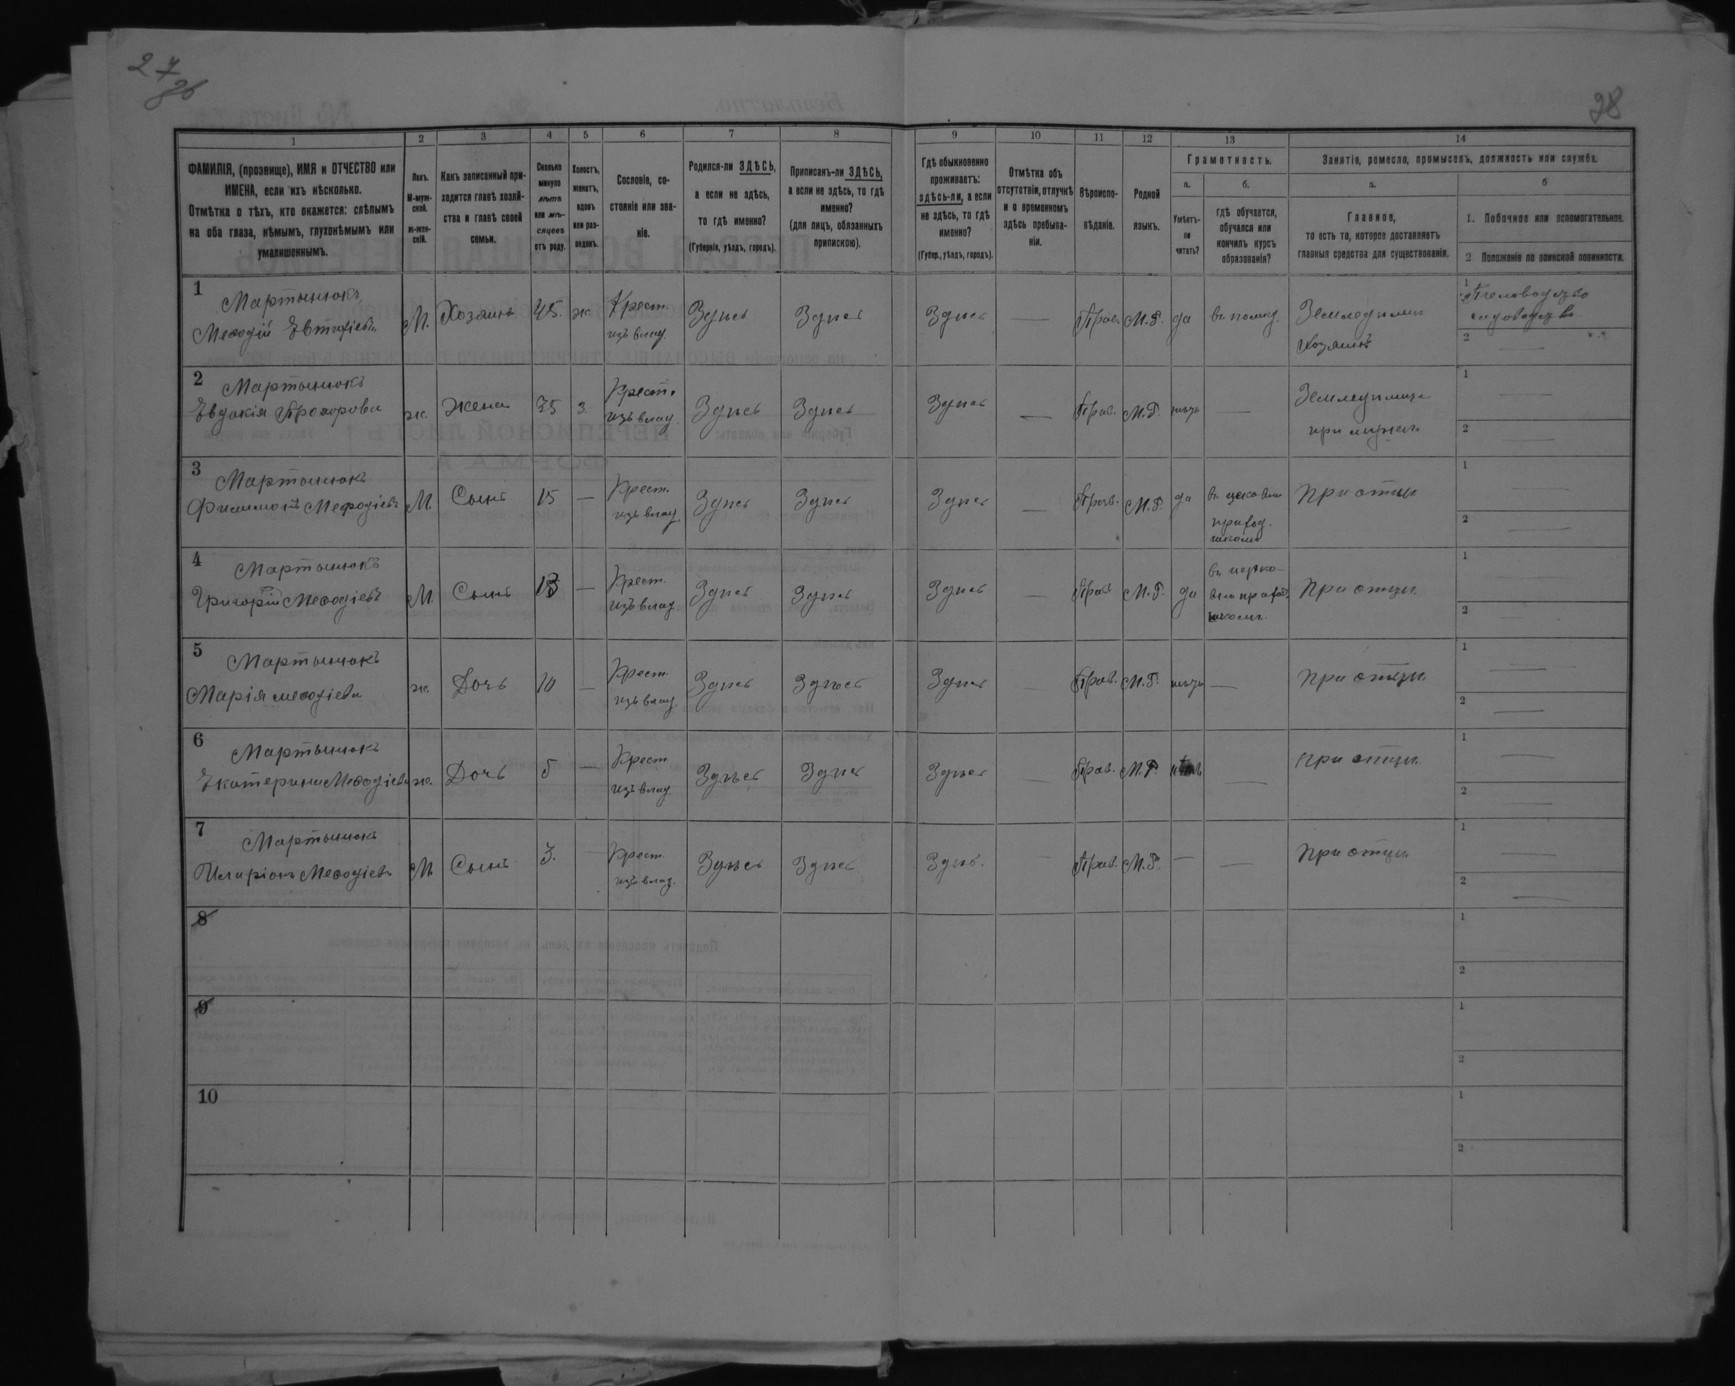 27
об
28
1
2
3
4
5
6
7
8
9
10
11
12
13
14
ФАМИЛІЯ, (прозвище), ИМЯ и ОТЧЕСТВО или
ИМЕНА, если ихъ нѣсколько.
Отмѣтка о тѣхъ, кто окажется: слѣпымъ
на оба глаза, нѣмымъ, глухонѣмымъ или
умалишеннымъ.
Полъ.
М-муж-
ской.
ж-жен-
скій.
Какъ записанный при-
ходится главѣ хозяй-
ства и главѣ своей
семьи.
Сколько
минуло
лѣтъ
или мѣ-
сяцевъ
отъ роду.
Холостъ,
женатъ,
вдовъ
или раз-
веденъ.
Сословіе, со-
стояніе или зва-
ніе.
Родился-ли ЗДѢСЬ,
а если не здѣсь,
то гдѣ именно?
(Губернія, уѣздъ, городъ).
Приписанъ-ли ЗДѢСЬ,
а если не здѣсь, то гдѣ
именно?
(для лицъ, обязанныхъ
припискою).
Гдѣ обыкновенно
проживаетъ:
здѣсь-ли, а если
не здѣсь, то гдѣ
именно?
(Губер., уѣздъ, городъ).
Отмѣтка объ
отсутствіи, отлучкѣ
и о временномъ
здѣсь пребыва-
ніи.
Вѣроиспо-
вѣданіе.
Родной
языкъ.
Грамотность.
а.
Умѣетъ-
ли
читать?
б.
гдѣ обучается,
обучался или
кончилъ курсъ
образованія?
Занятіе, ремесло, промыселъ, должность или служба.
а.
Главное,
то есть то, которое доставляетъ
главныя средства для существованія.
б
1. Побочное или вспомогательное.
2 Положеніе по воинской повинности.
1
Мартынюкъ
Меѳодій Евтихіевъ
М. Хозяинъ 45. ж. Крест.
изъ влад.
Здѣсь Здѣсь Здѣсь — Прав. М.Р. да
Земледѣлецъ
хозяинъ
1 Пчеловодство
садоводство
2 —
2
Мартынюкъ
Евдокія Прохорова
ж. Жена З. Крест.
изъ влад.
Здѣсь Здѣсь Здѣсь — Прав. М.Р. нѣтъ —
при мужѣ
1 —
2 —
3
Мартынюкъ
Филимонъ Мефодіевъ
М. Сынъ 15 — Крест.
изъ влад.
Здѣсь Здѣсь Здѣсь — Прав. М.Р. да
школѣ
При отцѣ
1 —
2 —
4
Мартынюкъ
Григорій Меѳодіевъ
М Сынъ 13 — Крест.
изъ влад.
Здѣсь Здѣсь Здѣсь — Прав М.Р. да
въ церко-
школѣ.
При отцѣ
1 —
2 —
5
Мартынюкъ
Марія Меѳодіева
ж. Дочь 10 — Крест.
изъ влад.
Здѣсь Здѣсь Здѣсь — Прав. М.Р. нѣтъ —
При отцѣ
1 —
2 —
6
Мартынюкъ
Екатерина Меѳодіева
ж. Дочь 5 — Крест
изъ влад.
Здѣсь Здѣсь Здѣсь — Прав. М.Р. —
При отцѣ
1 —
2 —
7
Мартынюкъ
Иларіонъ Меѳодіевъ
М Сынъ 3. — Крест.
изъ влад.
Здѣсь Здѣсь Здѣсь — Прав. М.Р. — —
При отцѣ
1 —
2 —
8
1
2
9
1
2
10
1
2